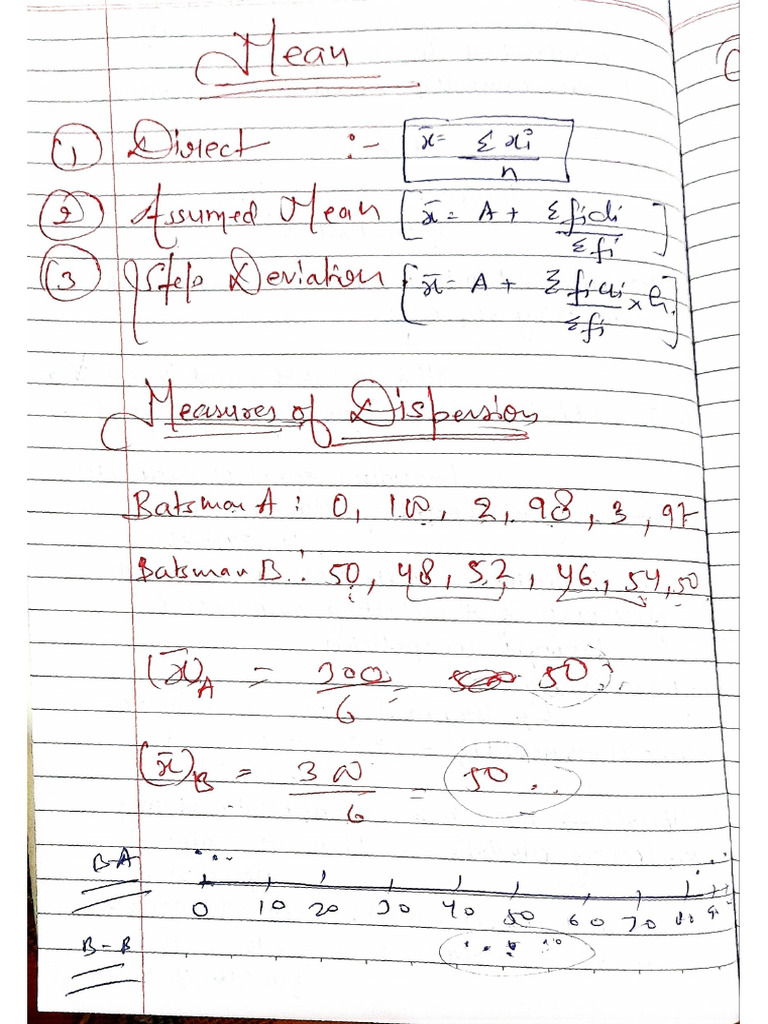 Mean
① Direct :- x̄ = Σ xi / n
② Assumed Mean [x̄ = A + Σ fidi / Σ fi]
③ Step Deviation [x̄ = A + Σ fiui / Σ fi × h]
Measures of Dispersion
Batsman A : 0, 100, 2, 98, 3, 97
Batsman B : 50, 48, 52, 46, 54, 50
(x̄)A = 300 / 6 = 50
(x̄)B = 300 / 6 = 50
B-A
0 10 20 30 40 50 60 70 80
B-B